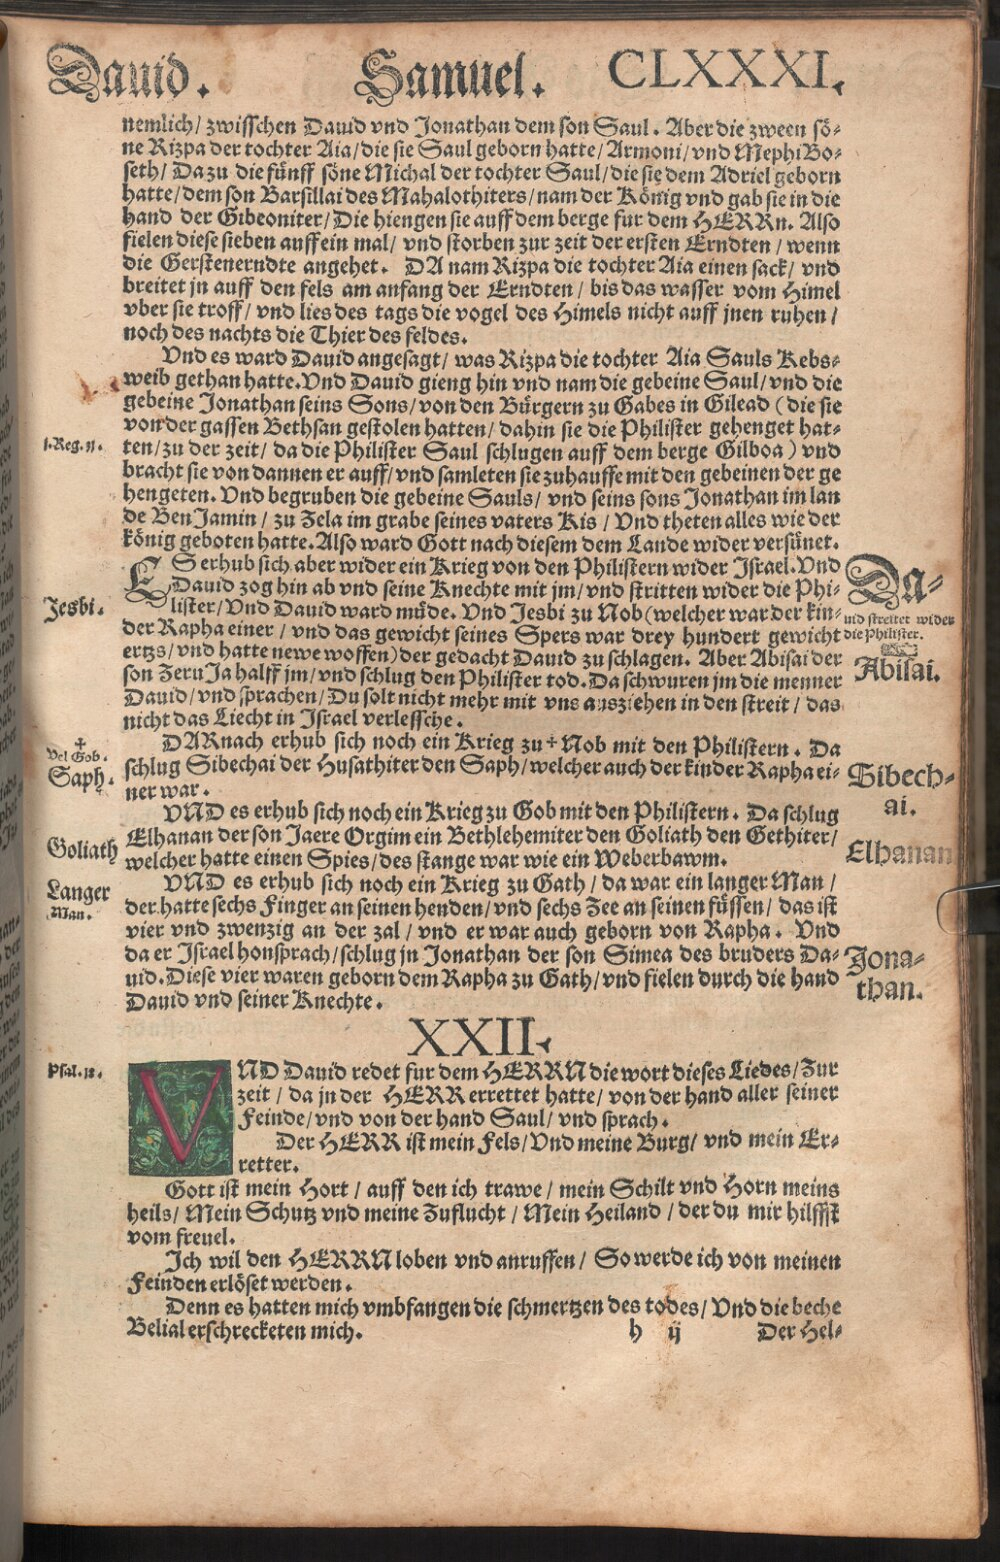 Dauid.
Samuel.
CLXXXI.
nemlich/ zwisschen Dauid vnd Jonathan dem son Saul. Aber die zween sö-
ne Rizpa der tochter Aia/ die sie Saul geborn hatte/ Armoni/ vnd MephiBo-
seth/ Dazu die fünff söne Michal der tochter Saul/ die sie dem Adriel geborn
hatte/ dem son Barsillai des Mahalothiters/ nam der König vnd gab sie in die
hand der Gibeoniter/ Die hiengen sie auff dem berge fur dem HERRn. Also
fielen diese sieben auff ein mal/ vnd storben zur zeit der ersten Erndten/ wenn
die Gerstenerndte angehet. DA nam Rizpa die tochter Aia einen sack/ vnd
breitet jn auff den fels am anfang der Erndten/ bis das wasser vom Himel
vber sie troff/ vnd lies des tags die vogel des Himels nicht auff jnen ruhen/
noch des nachts die Thier des feldes.
Vnd es ward Dauid angesagt/ was Rizpa die tochter Aia Sauls Kebs-
weib gethan hatte. Vnd Dauid gieng hin vnd nam die gebeine Saul/ vnd die
gebeine Jonathan seins Sons/ von den Bürgern zu Gabes in Gilead (die sie
von der gassen Bethsan gestolen hatten/ dahin sie die Philister gehenget hat-
1. Reg. 31.
ten/ zu der zeit/ da die Philister Saul schlugen auff dem berge Gilboa) vnd
bracht sie von dannen er auff/ vnd samleten sie zuhauffe mit den gebeinen der ge
hengeten. Vnd begruben die gebeine Sauls/ vnd seins sons Jonathan im lan
de BenJamin/ zu Zela im grabe seines vaters Kis/ Vnd theten alles wie der
könig geboten hatte. Also ward Gott nach diesem dem Lande wider versünet.
ES erhub sich aber wider ein Krieg von den Philistern wider Israel. Vnd
Dauid zog hin ab vnd seine Knechte mit jm/ vnd stritten wider die Phi-
lister/ Vnd Dauid ward müde. Vnd Jesbi zu Nob (welcher war der kin-
der Rapha einer/ vnd das gewicht seines Spers war drey hundert gewicht
ertzs/ vnd hatte newe woffen) der gedacht Dauid zu schlagen. Aber Abisai der
son ZeruJa halff jm/ vnd schlug den Philister tod. Da schwuren jm die menner
Dauid/ vnd sprachen/ Du solt nicht mehr mit vns ausziehen in den streit/ das
nicht das Liecht in Israel verlessche.
Da-
uid streitet wider
die Philister.
Jesbi.
Abisai.
DARnach erhub sich noch ein Krieg zu + Nob mit den Philistern. Da
schlug Sibechai der Husathiter den Saph/ welcher auch der kinder Rapha ei-
ner war.
+
Vel Gob.
Saph.
Sibech-
ai.
VND es erhub sich noch ein Krieg zu Gob mit den Philistern. Da schlug
Elhanan der son Jaere Orgim ein Bethlehemiter den Goliath den Gethiter/
welcher hatte einen Spies/ des stange war wie ein Weberbawm.
Goliath
Elhanan
VND es erhub sich noch ein Krieg zu Gath/ da war ein langer Man/
der hatte sechs Finger an seinen henden/ vnd sechs Zee an seinen füssen/ das ist
vier vnd zwenzig an der zal/ vnd er war auch geborn von Rapha. Vnd
da er Israel honsprach/ schlug jn Jonathan der son Simea des bruders Da-
uid. Diese vier waren geborn dem Rapha zu Gath/ vnd fielen durch die hand
Dauid vnd seiner Knechte.
Langer
Man.
Jona-
than.
XXII.
Psal. 18.
VND Dauid redet fur dem HERRN die wort dieses Liedes/ Zur
zeit/ da jn der HERR errettet hatte/ von der hand aller seiner
Feinde/ vnd von der hand Saul/ vnd sprach.
Der HERR ist mein Fels/ Vnd meine Burg/ vnd mein Er-
retter.
Gott ist mein Hort/ auff den ich trawe/ mein Schilt vnd Horn meins
heils/ Mein Schutz vnd meine Zuflucht/ Mein Heiland/ der du mir hilffst
vom freuel.
Ich wil den HERRN loben vnd anruffen/ So werde ich von meinen
Feinden erlöset werden.
Denn es hatten mich vmbfangen die schmertzen des todes/ Vnd die beche
Belial erschrecketen mich.
h ij
Der Hel-